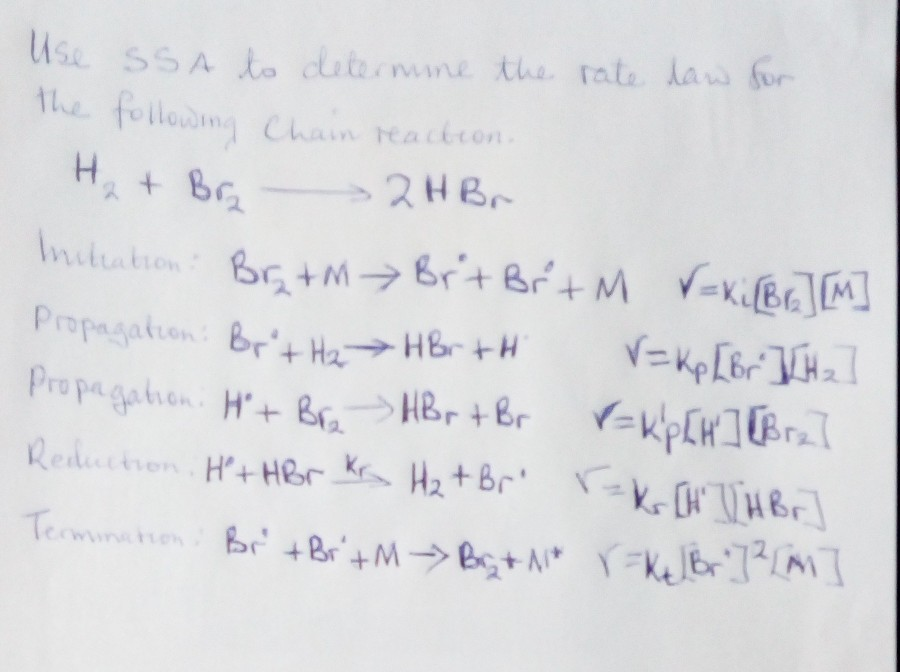 Use SSA to determine the rate law for
the following Chain reaction.
H₂ + Br₂ ⟶ 2HBr
Initiation: Br₂ + M → Br• + Br• + M r = Ki[Br₂][M]
Propagation: Br• + H₂ → HBr + H• r = Kp[Br•][H₂]
Propagation: H• + Br₂ → HBr + Br r = K'p[H•][Br₂]
Reduction. H• + HBr Kr→ H₂ + Br• r = Kr[H•][HBr]
Termination: Br• + Br• + M → Br₂ + M* r = Kt[Br•]²[M]